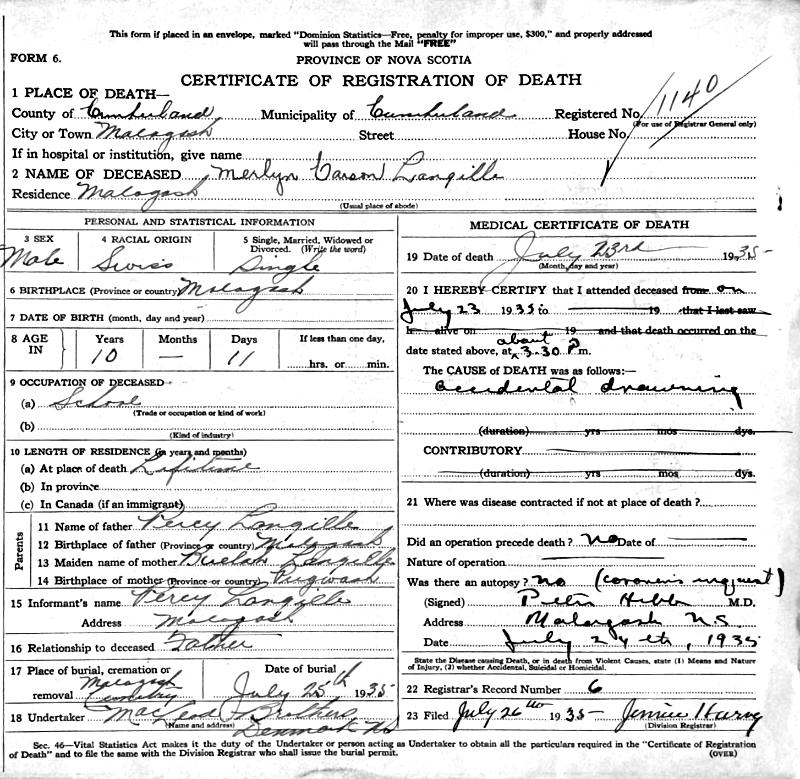 This form if placed in an envelope, marked "Dominion Statistics—Free, penalty for improper use, $300," and properly addressed
will pass through the Mail "FREE"
FORM 6.
PROVINCE OF NOVA SCOTIA
CERTIFICATE OF REGISTRATION OF DEATH
1 PLACE OF DEATH—
County of Cumberland Municipality of Cumberland Registered No. 1140
(For use of Registrar General only)
City or Town Malagash Street House No.
If in hospital or institution, give name
2 NAME OF DECEASED Merlyn Carson Langille
Residence Malagash
(Usual place of abode)
PERSONAL AND STATISTICAL INFORMATION
3 SEX 4 RACIAL ORIGIN 5 Single, Married, Widowed or
Divorced. (Write the word)
Male Swiss Single
6 BIRTHPLACE (Province or country) Malagash
7 DATE OF BIRTH (month, day and year)
8 AGE IN Years Months Days If less than one day,
10 — 11 hrs. or min.
9 OCCUPATION OF DECEASED
(a) School
(Trade or occupation or kind of work)
(b)
(Kind of industry)
10 LENGTH OF RESIDENCE (in years and months)
(a) At place of death Lifetime
(b) In province
(c) In Canada (if an immigrant)
Parents
11 Name of father Percy Langille
12 Birthplace of father (Province or country) Malagash
13 Maiden name of mother Langille
14 Birthplace of mother (Province or country) Pugwash
15 Informant's name Percy Langille
Address Malagash
16 Relationship to deceased Father
17 Place of burial, cremation or Date of burial
removal Malagash Cemetery July 25th 1935
18 Undertaker MacLeod Brothers
(Name and address) Denmark NS
MEDICAL CERTIFICATE OF DEATH
19 Date of death July 23rd 1935
(Month, day and year)
20 I HEREBY CERTIFY that I attended deceased from on
July 23 1935 to 19 that I last saw
h alive on 19 and that death occurred on the
about
date stated above, at 3.30 P.m.
The CAUSE of DEATH was as follows:—
accidental drowning
(duration) yrs mos dys.
CONTRIBUTORY
(duration) yrs mos dys.
21 Where was disease contracted if not at place of death?
Did an operation precede death? No Date of
Nature of operation
Was there an autopsy? no (coroner's inquest)
(Signed) Peter Hebb M.D.
Address Malagash N.S.
Date July 24th, 1935
State the Disease causing Death, or in death from Violent Causes, state (1) Means and Nature
of Injury, (2) whether Accidental, Suicidal or Homicidal.
22 Registrar's Record Number 6
23 Filed July 26th 1935
(Division Registrar)
Sec. 46—Vital Statistics Act makes it the duty of the Undertaker or person acting as Undertaker to obtain all the particulars required in the "Certificate of Registration
of Death" and to file the same with the Division Registrar who shall issue the burial permit. (OVER)